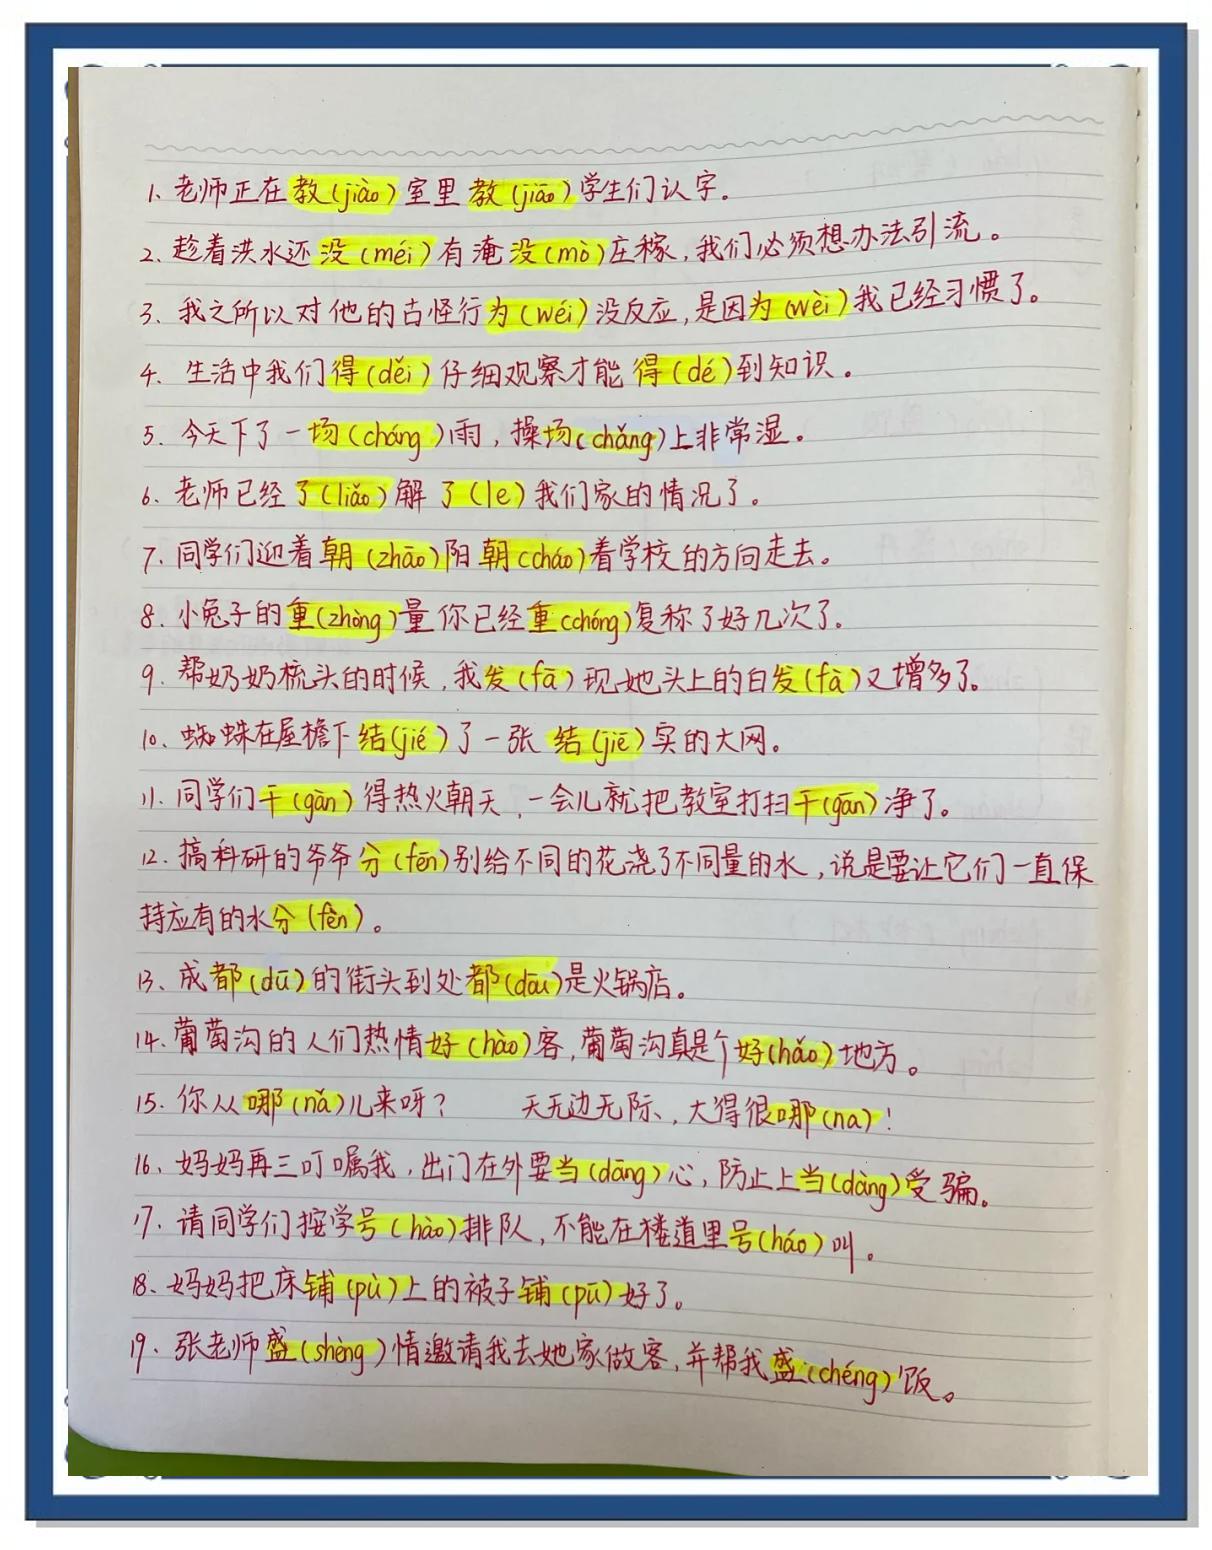 1. 老师正在教(jiào)室里教(jiāo)学生们认字。
2. 趁着洪水还没(méi)有淹没(mò)庄稼,我们必须想办法引流。
3. 我之所以对他的古怪行为(wéi)没反应,是因为(wèi)我已经习惯了。
4. 生活中我们得(děi)仔细观察才能得(dé)到知识。
5. 今天下了一场(cháng)雨,操场(chǎng)上非常湿。
6. 老师已经了(liǎo)解了(le)我们家的情况了。
7. 同学们迎着朝(zhāo)阳朝(cháo)着学校的方向走去。
8. 小兔子的重(zhòng)量你已经重(chóng)复称了好几次了.
9. 帮奶奶梳头的时候,我发(fā)现她头上的白发(fà)又增多了。
10. 蜘蛛在屋檐下结(jié)了一张结(jiē)实的大网。
11. 同学们干(gàn)得热火朝天,一会儿就把教室打扫干(gān)净了。
12. 搞科研的爷爷分(fēn)别给不同的花浇了不同量的水,说是要让它们一直保
持应有的水分(fèn)。
13. 成都(dū)的街头到处都(dōu)是火锅店。
14. 葡萄沟的人们热情好(hào)客,葡萄沟真是个好(hǎo)地方。
15. 你从哪(nǎ)儿来呀? 天无边无际、大得很哪(na)!
16. 妈妈再三叮嘱我,出门在外要当(dāng)心,防止上当(dàng)受骗。
17. 请同学们按学号(hào)排队,不能在楼道里号(háo)叫。
18. 妈妈把床铺(pù)上的被子铺(pū)好了。
19. 张老师盛(shèng)情邀请我去她家做客,并帮我盛(chéng)饭。